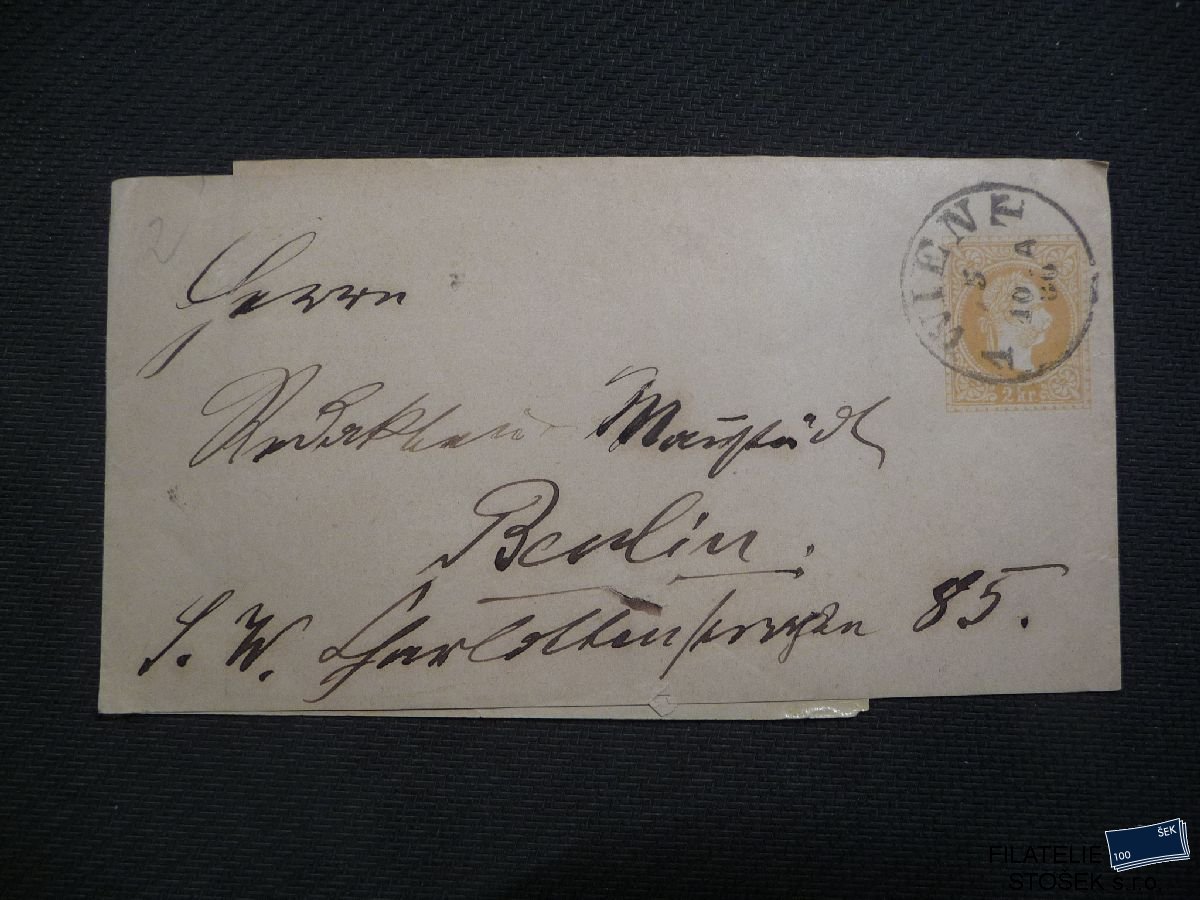 2
WIEN T
5 A
10
1
2 kr
Herrn
Redakteur
Berlin.
S. W. Charlottenstraße 85.
ŠEK
100
FILATELIE
STOŠEK s.r.o.